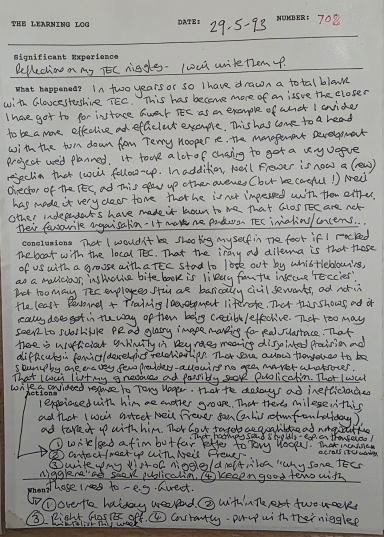 THE LEARNING LOG DATE: 29-5-93 NUMBER: 708
Significant Experience
Reflection on my TEC niggles - I will write them up.
What happened? In two years or so I have drawn a total blank
with Gloucestershire TEC. This has become more of an issue the closer
I have got to for instance Gwent TEC as an example of what I consider
to be a more effective and efficient example. This has come to a head
with the turn down from Terry Hooper re. the management development
project we'd planned. It took a lot of chasing to get a very vague
rejection that I will follow-up. In addition, Neil Frewer is now a (new)
Director of the TEC, and this opens up other avenues (but be careful!) Neil
has made it very clear to me that he is not impressed with them either.
Other independents have made it known to me that GLOSTEC are not
their favourite organisation - it
Conclusions That I wouldn't be shooting myself in the foot if I rocked
the boat with the local TEC. That the irony and dilemma is that those
of us with a grouse with a TEC stand to lose out by whistleblowing,
as a malicious, insidious bite back is likely from the insecure 'TECcies'
That too many TEC employees still are basically civil servants, and not in
the least Personnel + Training/Development literate. That this shows, and it
really does get in the way of them being credible/effective. That too many
seek to substitute PR and glossy image making for real substance. That
there is insufficient continuity in key roles meaning disjointed provision and
difficulty in forming/developing relationships. That some allow themselves to be
by one or a very few providers - allowing no open market whatsoever.
That I will list my grievances and possibly seek publication. That I will
write a request to Terry Hooper - that the delays and inefficiencies
Actions
I experienced with him are another grouse. That there's mileage in this
and that I will contact Neil Frewer soon (on his return from holiday)
and take it up with him. That Govt targets are
① Write/send a firm but fair letter to Terry Hooper.
② Contact/meet up with Neil Frewer.
③ Write up my list of niggles/draft article "Why some TECs
niggle me" and seek publication. ④ Keep on good terms with
those I rate - e.g. Gwent.
When?
① Over the holiday weekend. ② Within the next two weeks
③ Right
④ Constantly - put up with their niggles